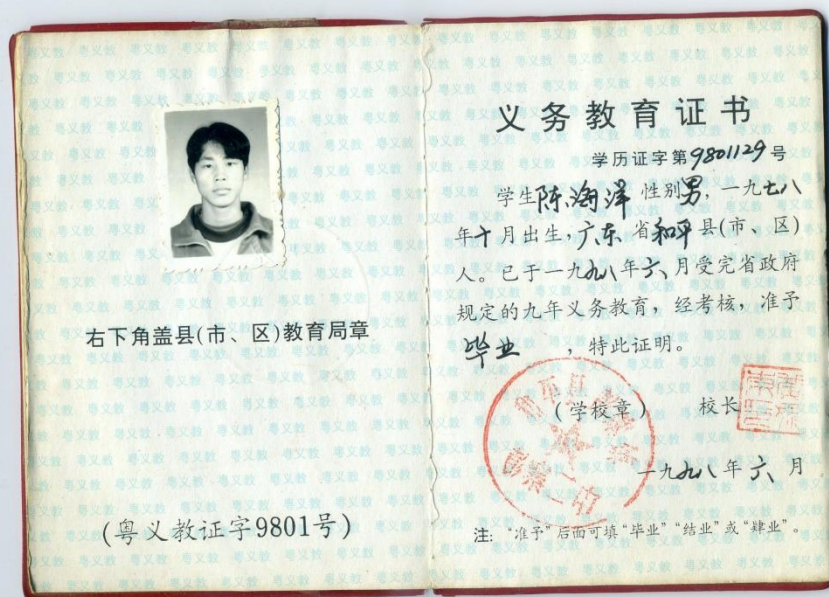 右下角盖县(市、区)教育局章
(粤义教证字9801号)
义务教育证书
学历证字第9801129号
学生陈海洋 性别男,一九七八
年十月出生,广东省和平县(市、区)
人。已于一九九八年六月受完省政府
规定的九年义务教育,经考核,准予
毕业,特此证明。
(学校章) 校长
一九九八年六月
注:“准予”后面可填“毕业”“结业”或“肄业”。
粤义教